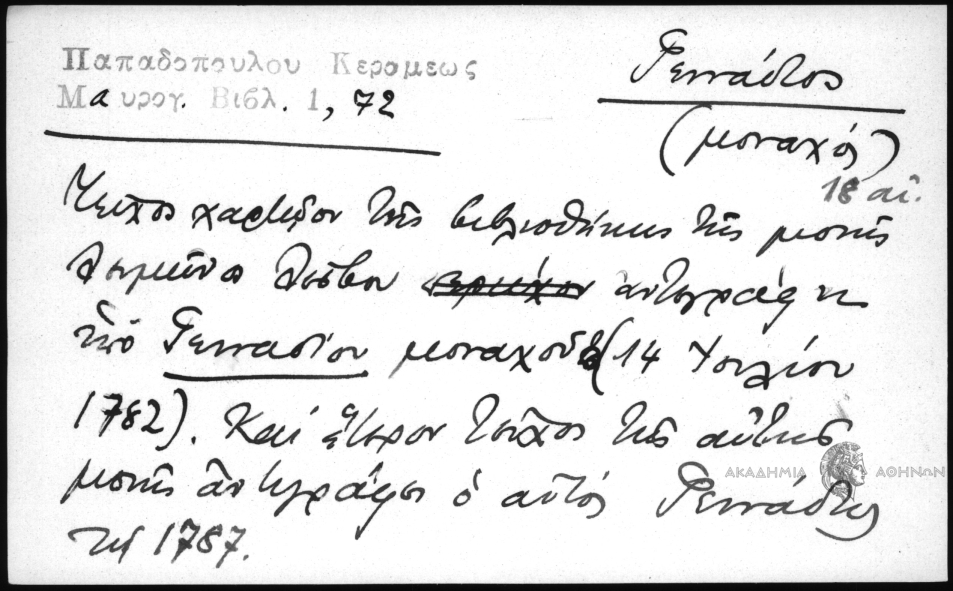 Παπαδοπουλου Κεραμεως
Μαυρογ. Βιβλ. 1, 72
Γεννάδιος
(μοναχός)
18 αἰ.
Τεῦχος χαρτῷον τῆς βιβλιοθήκης τῆς μονῆς
Λειμῶνος Λέσβου ἀντεγράφη
ὑπό Γενναδίου μοναχοῦ (14 Ἰουλίου
1782). Καί ἕτερον τεῦχος τῆς αὐτῆς
μονῆς ἀντέγραψεν ὁ αὐτός Γεννάδιος
τῷ 1787.
ΑΚΑΔΗΜΙΑ ΑΘΗΝΩΝ